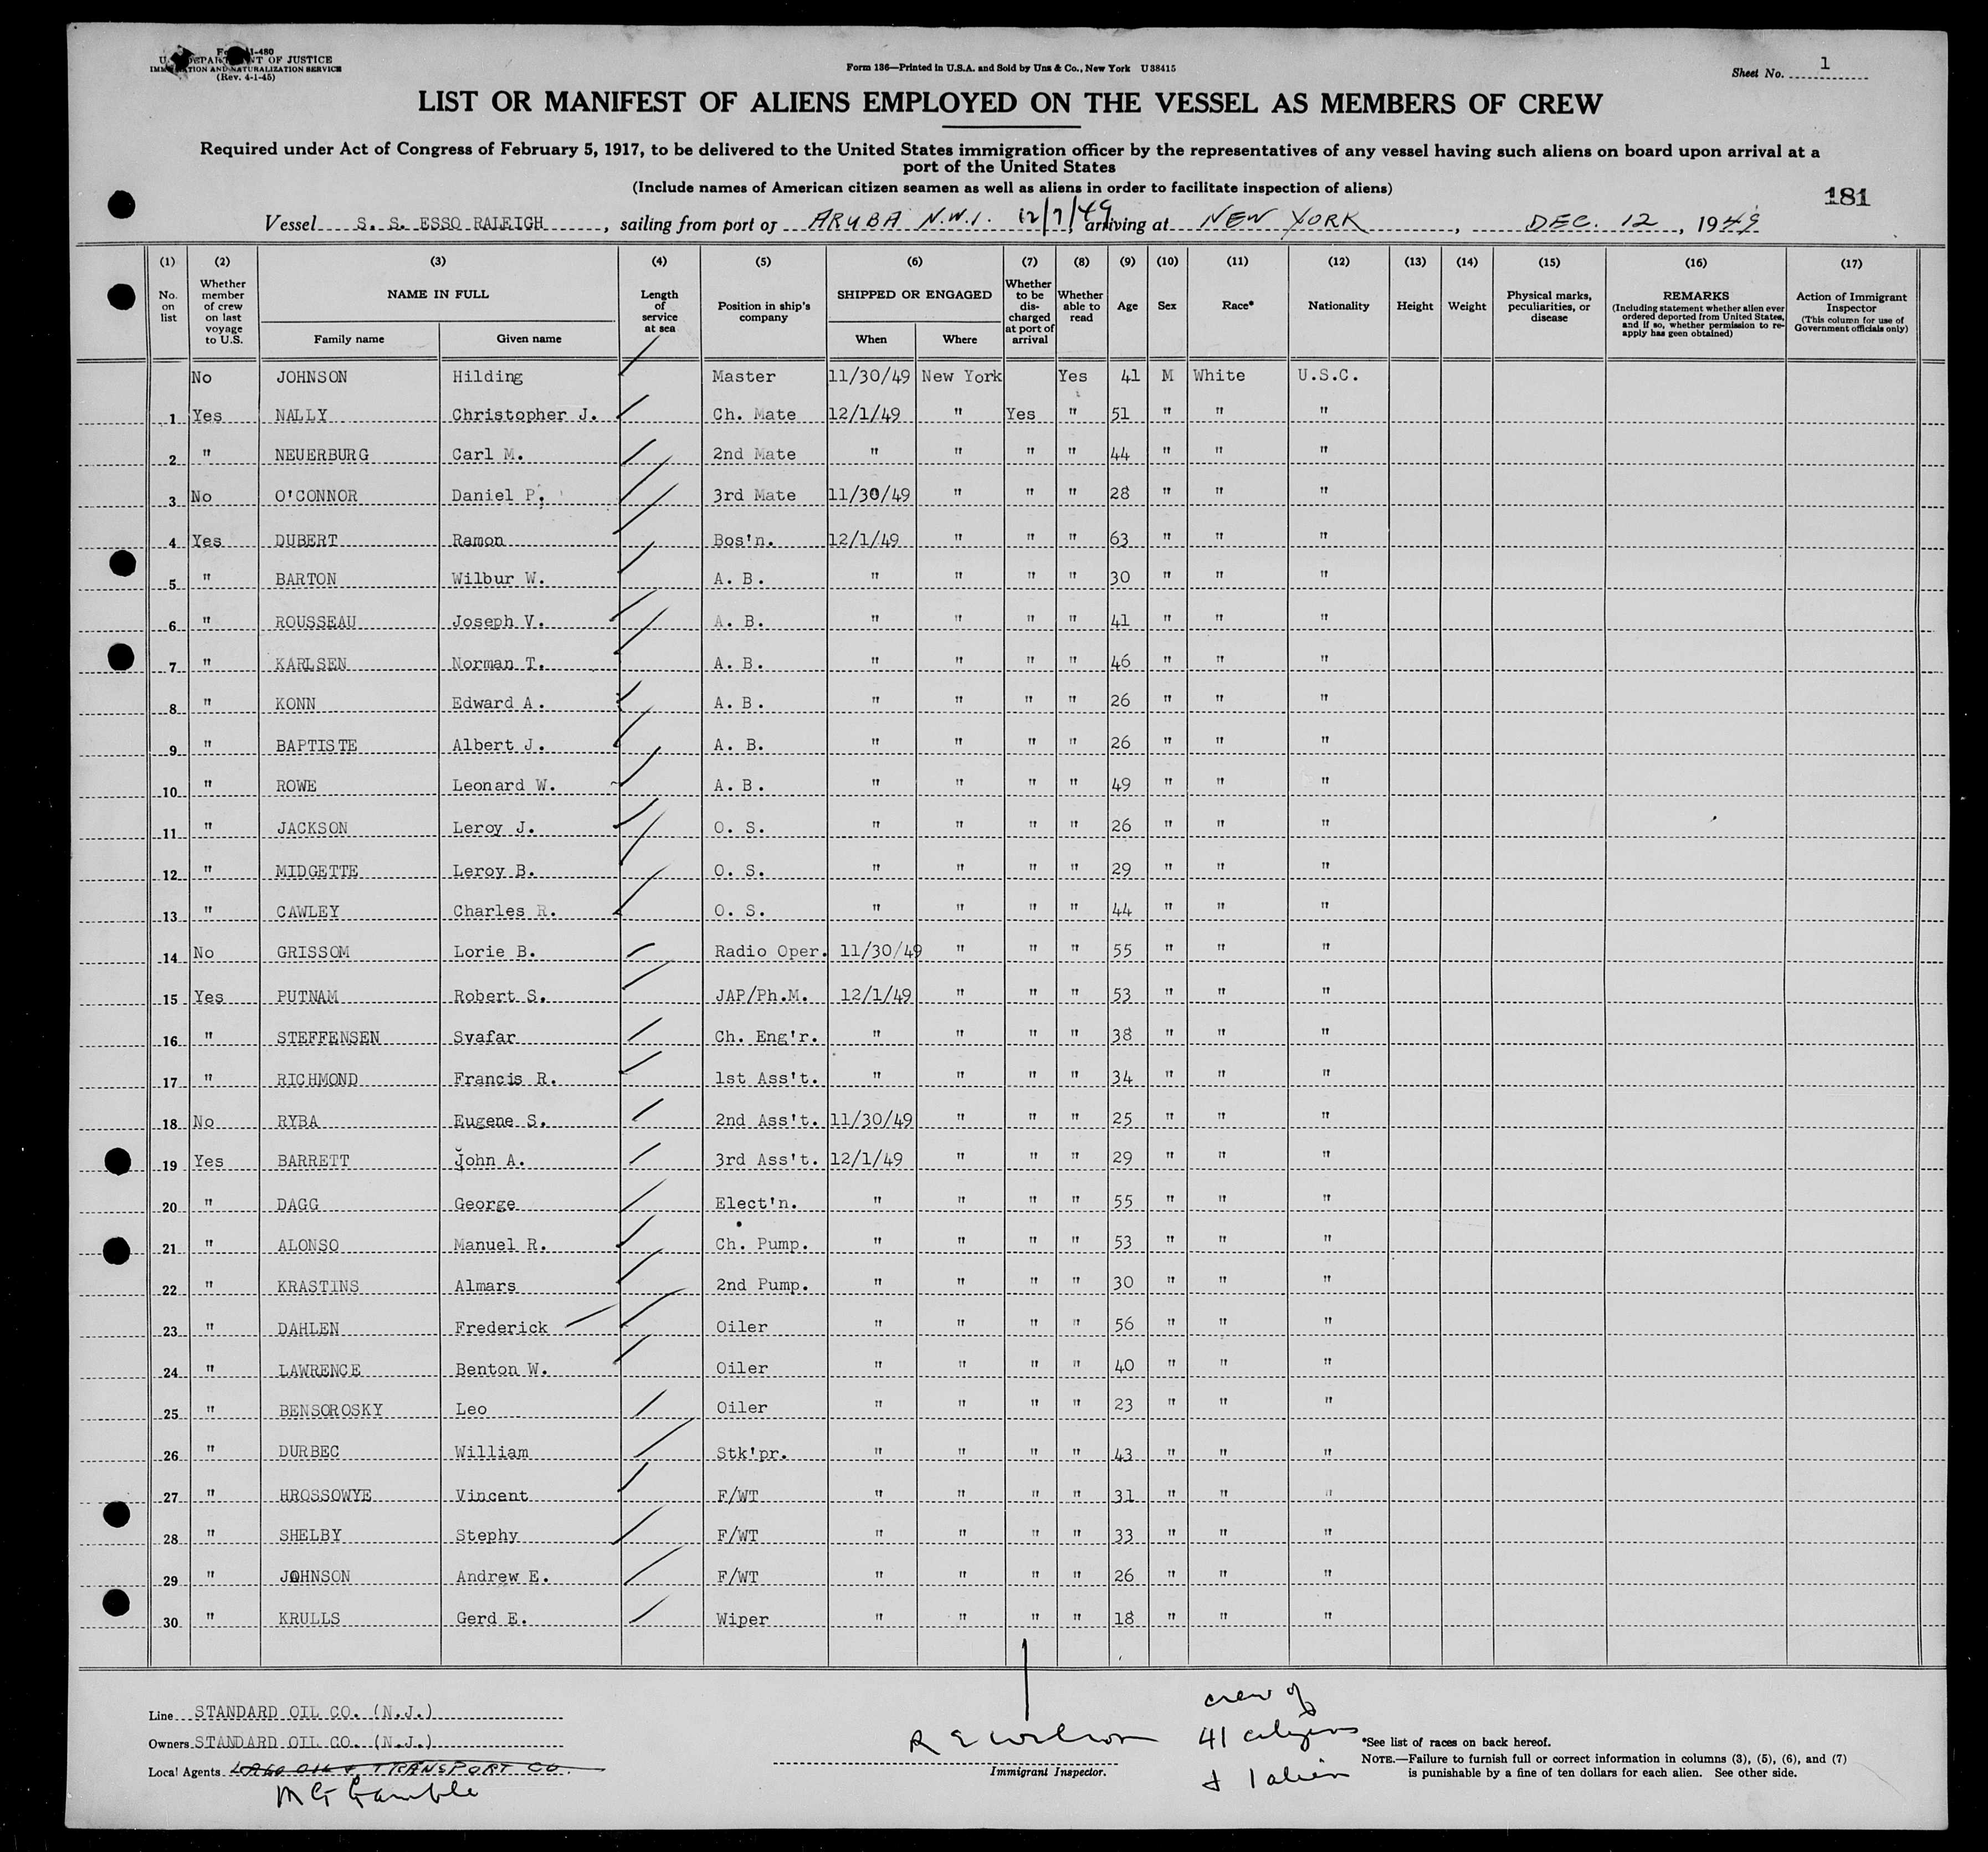 Form I-480
U. S. DEPARTMENT OF JUSTICE
IMMIGRATION AND NATURALIZATION SERVICE
(Rev. 4-1-45)
Form 136—Printed in U.S.A. and Sold by Unz & Co., New York U38415
Sheet No. 1
LIST OR MANIFEST OF ALIENS EMPLOYED ON THE VESSEL AS MEMBERS OF CREW
Required under Act of Congress of February 5, 1917, to be delivered to the United States immigration officer by the representatives of any vessel having such aliens on board upon arrival at a
port of the United States
(Include names of American citizen seamen as well as aliens in order to facilitate inspection of aliens)
181
Vessel S. S. ESSO RALEIGH, sailing from port of ARUBA N.W.I. 12/7/49, arriving at NEW YORK, DEC. 12, 1949
(1) (2) (3) (4) (5) (6) (7) (8) (9) (10) (11) (12) (13) (14) (15) (16) (17)
No. on list Whether member of crew on last voyage to U.S. NAME IN FULL Family name Given name Length of service at sea Position in ship's company SHIPPED OR ENGAGED When Where Whether to be discharged at port of arrival Whether able to read Age Sex Race* Nationality Height Weight Physical marks, peculiarities, or disease REMARKS (Including statement whether alien ever ordered deported from United States, and if so, whether permission to reapply has geen obtained) Action of Immigrant Inspector (This column for use of Government officials only)
No JOHNSON Hilding Master 11/30/49 New York Yes 41 M White U.S.C.
1 Yes NALLY Christopher J. Ch. Mate 12/1/49 " Yes " 51 " " "
2 " NEUERBURG Carl M. 2nd Mate " " " " 44 " " "
3 No O'CONNOR Daniel P. 3rd Mate 11/30/49 " " " 28 " " "
4 Yes DUBERT Ramon Bos'n. 12/1/49 " " " 63 " " "
5 " BARTON Wilbur W. A. B. " " " " 30 " " "
6 " ROUSSEAU Joseph V. A. B. " " " " 41 " " "
7 " KARLSEN Norman T. A. B. " " " " 46 " " "
8 " KONN Edward A. A. B. " " " " 26 " " "
9 " BAPTISTE Albert J. A. B. " " " " 26 " " "
10 " ROWE Leonard W. A. B. " " " " 49 " " "
11 " JACKSON Leroy J. O. S. " " " " 26 " " "
12 " MIDGETTE Leroy B. O. S. " " " " 29 " " "
13 " CAWLEY Charles R. O. S. " " " " 44 " " "
14 No GRISSOM Lorie B. Radio Oper. 11/30/49 " " " 55 " " "
15 Yes PUTNAM Robert S. JAP/Ph.M. 12/1/49 " " " 53 " " "
16 " STEFFENSEN Svafar Ch. Eng'r. " " " " 38 " " "
17 " RICHMOND Francis R. 1st Ass't. " " " " 34 " " "
18 No RYBA Eugene S. 2nd Ass't. 11/30/49 " " " 25 " " "
19 Yes BARRETT John A. 3rd Ass't. 12/1/49 " " " 29 " " "
20 " DAGG George Elect'n. " " " " 55 " " "
21 " ALONSO Manuel R. Ch. Pump. " " " " 53 " " "
22 " KRASTINS Almars 2nd Pump. " " " " 30 " " "
23 " DAHLEN Frederick Oiler " " " " 56 " " "
24 " LAWRENCE Benton W. Oiler " " " " 40 " " "
25 " BENSOROSKY Leo Oiler " " " " 23 " " "
26 " DURBEC William Stk'pr. " " " " 43 " " "
27 " HROSSOWYE Vincent F/WT " " " " 31 " " "
28 " SHELBY Stephy F/WT " " " " 33 " " "
29 " JOHNSON Andrew E. F/WT " " " " 26 " " "
30 " KRULLS Gerd E. Wiper " " " " 18 " " "
Line STANDARD OIL CO. (N.J.)
Owners STANDARD OIL CO. (N.J.)
Local Agents LAGO OIL & TRANSPORT CO.
McG Gamble
R E Wilson
Immigrant Inspector.
crew of
41 citizens
& 1 alien
*See list of races on back hereof.
NOTE.—Failure to furnish full or correct information in columns (3), (5), (6), and (7)
is punishable by a fine of ten dollars for each alien. See other side.